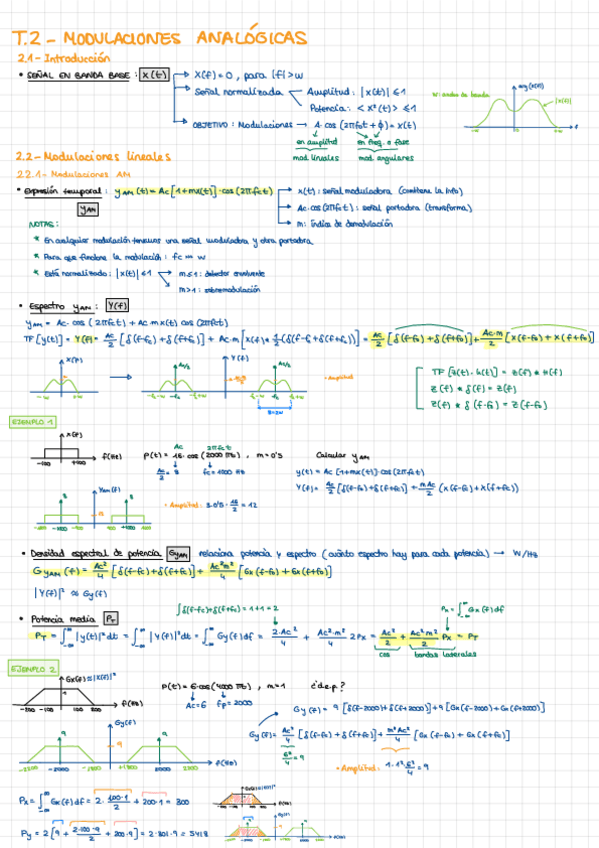 T.2 - MODULACIONES ANALÓGICAS
2.1 - Introducción
• SEÑAL EN BANDA BASE: x(t) → X(f) = 0, para |f| > w
→ Señal normalizada
Amplitud: |x(t)| ≤ 1
Potencia: < x²(t) > ≤ 1
w: ancho de banda
→ OBJETIVO: Modulaciones → A·cos(2πf₀t + ϕ) = x(t)
en amplitud
en freq. o fase
mod. lineales
mod. angulares
2.2 - Modulaciones lineales
2.2.1 - Modulaciones AM
• Expresión temporal: y_AM(t) = Ac[1+mx(t)]·cos(2πfct)
→ x(t): señal moduladora (contiene la info)
→ Ac·cos(2πfct): señal portadora (transforma)
→ m: índice de demodulación
y_AM
NOTAS:
* En cualquier modulación tenemos una señal moduladora y otra portadora
* Para que funcione la modulación: fc >> w
* Está normalizado: |x(t)| ≤ 1
→ m≤1: detector envolvente
→ m>1: sobremodulación
• Espectro y_AM: Y(f)
y_AM = Ac·cos(2πfct) + Ac·m x(t) cos(2πfct)
TF[y(t)] = Y(f) = Ac/2 [δ(f-fc)+δ(f+fc)] + Ac·m [X(f) * 1/2(δ(f-fc)+δ(f+fc))] = Ac/2 [δ(f-fc)+δ(f+fc)] + Ac·m/2 [X(f-fc)+X(f+fc)]
X(f)
Y(f)
Ac/2
Ac/2
• Amplitud
-w
w
-fc-w -fc -fc+w
fc-w fc fc+w
B=2w
TF[z(t)·k(t)] = Z(f) * K(f)
Z(f) * δ(f) = Z(f)
Z(f) * δ(f-f₀) = Z(f-f₀)
EJEMPLO 1
X(f)
-100 +100 f(Hz)
Ac 2πfct
p(t) = 16·cos(2000πt), m = 0'5
Ac/2 = 8 fc = 1000 Hz
Calcular y_AM
y(t) = Ac[1+mx(t)]·cos(2πfct)
Y(f) = Ac/2 [δ(f-fc)+δ(f+fc)] + mAc/2 (X(f-fc)+X(f+fc))
Y_AM(f)
8
8
-1000
+1000
• Densidad espectral de potencia G_yAM relaciona potencia y espectro (cuánto espectro hay para cada potencia) → W/Hz
G_yAM(f) = Ac²/4 [δ(f-fc)+δ(f+fc)] + Ac²m²/4 [Gx(f-fc)+Gx(f+fc)]
|Y(f)|² ≈ Gy(f)
• Potencia media P_T
∫δ(f-fc)+δ(f+fc) = 1+1 = 2
Px = ∫Gx(f)df
P_T = ∫|y(t)|²dt = ∫|Y(f)|²dt = ∫Gy(f)df = 2·Ac²/4 + Ac²·m²/4 2Px = Ac²/2 + Ac²m²/2 Px = P_T
cos
bandas laterales
EJEMPLO 2
Gx(f) = |X(f)|²
1
-200 -100 100 200 f(Hz)
p(t) = 6·cos(4000πt), m=1 ¿d.e.p?
Ac=6 fp=2000
Gy(f) = 9[δ(f-2000)+δ(f+2000)]+9[Gx(f-2000)+Gx(f+2000)]
Gy(f) = Ac²/4 [δ(f-fc)+δ(f+fc)] + m²Ac²/4 [Gx(f-fc)+Gx(f+fc)]
6²/4 = 9
• Amplitud: 1·1²·6²/4 = 9
Gy(f)
9
9
9
-2200 -2000 -1800 +1800 2000 2200 f(Hz)
Px = ∫Gx(f)df = 2·100·1/2 + 200·1 = 300